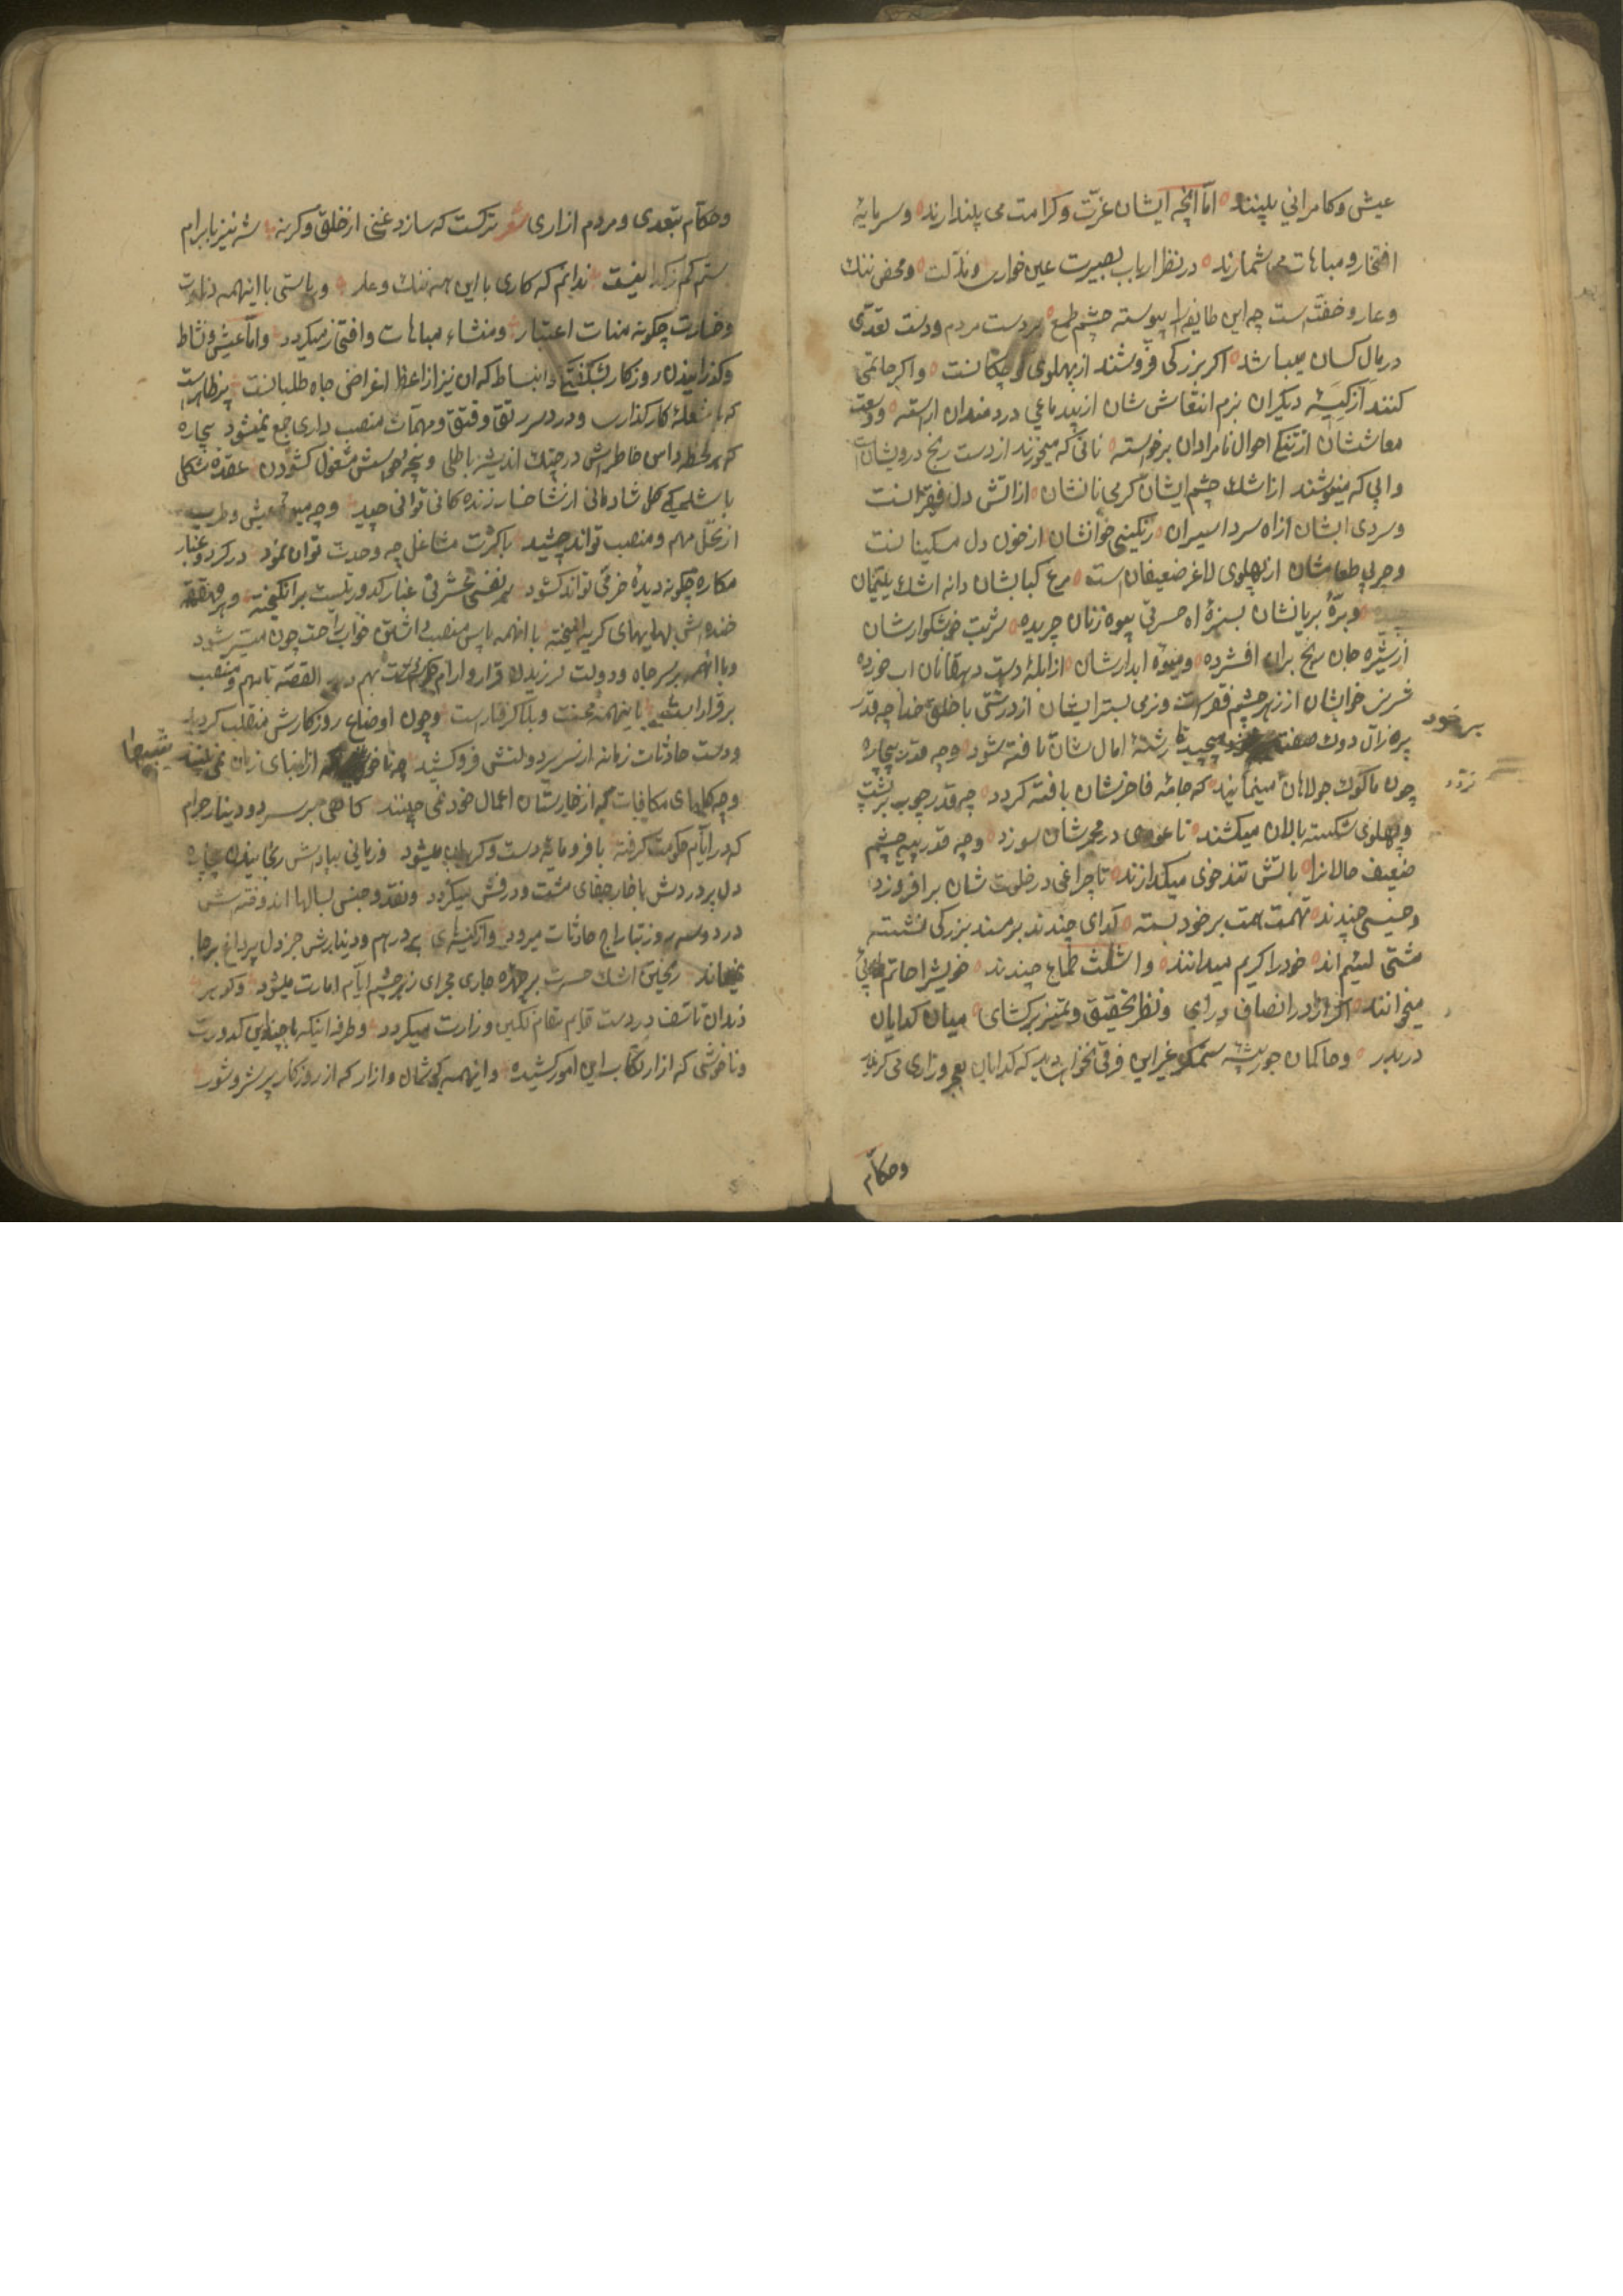 عیش و کامرانی بلینند اما آنچه ایشان عزت و کرامت می پندارند و سرمایهٔ
افتخار و مباهات می شمارند در نظر ارباب بصیرت عین خواری و مذلت و محض ننک
و عار و خفتست چه این طایفه را پیوسته چشم طمع بر دست مردم و دست تعدی
در مال کسان میباشد اکر بزرکی فروشند از پهلوی کوچکانست و اکر حاتمی
کنند از کیسهٔ دیکران بزم انتعاش شان از بیدماغی دردمندان اراسته و وسعت
معاششان از تنکی احوال نامرادان برخواسته نانی که میخورند از دست رنج درویشان است
و ابی که مینوشند از اشک چشم ایشان کرمی نانشان از اتش دل فقراست
و سردی ابشان از اه سرد اسیران رنکینی خوانشان از خون دل مسکینانست
و چربی طعامشان از پهلوی لاغر ضعیفان است مرغ کبابشان دانه اشک یتیمان
و برهٔ بریانشان بسبزهٔ اه حسرت بیوه زنان چریده شربت خوشکوارشان
از شیره جان رنج بران افشرده و میوهٔ ابدارشان از ابلهٔ دست دهقانان اب خورده
خوابشان از زهر چشم فقراست و نرمی بسترایشان از درشتی با خلق خدا چه قدر
پیره زال دوک صفت بر خود پیچید تا رشتهٔ امال شان تافته شود و چه قدر بیچاره
بر خود
تردد
چون ماکوک جولاهان مینمایند که جامهٔ فاخرشان بافته کردد چه قدر چوب بر پشت
و پهلوی شکسته بالان میکشند تا عودی در مجمرشان سوزد و چه قدر پیه چشم
ضعیف حالانرا باتش تندخوی میکدازند تا چراغی در خلوت شان بر افروزد
خسیسی چندند تهمت همت بر خود بسته کدای چندند بر مسند بزرکی نشسته
مشتی لییم اند خود را کریم میدانند و اشعث طماع چندند خویش را حاتم طایی
میخوانند اکر از در انصاف درآی و نظر تحقیق و تمیز برکشای میان کدایان
دربدر و حاکمان جور پیشه ستمکر غیر این فرقی نخواهی دید که کدایان بعجز و زاری می کیرند
و حکام
و حکام بتعدی و مردم ازاری شعر ترکست که سازد غنی از خلق و کرنه شه نیز بابرام
ستم کم ز کدا نیست ندانم که کاری با این همه ننک و عار و ریاستی با اینهمه ذلت
و خسارت چکونه مناط اعتبار و منشاء مباهات و افتخار میکردد و اما عیش و نشاط
و کذرانیدن روزکار بشکفتکی و انبساط که ان نیز از اعظم اغراض جاه طلبانست پر ظاهرست
که با مشغلهٔ کارکذاری و دردسر رتق و فتق و مهمات منصب داری جمع نمیشود بیچاره
که هر لحظه داس خاطرش در چنک اندیشهٔ باطلی و پنجه سعیش مشغول کشودن عقدهٔ مشکلی
باشد کی کل شادمانی از شاخسار زندکانی تواند چید و چه میوهٔ عیش و طرب
از نخل مهم و منصب تواند چشید باکثرت مشاغل چه وحدت توان نمود در کرد و غبار
مکاره چکونه دیدهٔ خرمی تواند کشود هر نفس عشرتی غبار کدورتیست بر انکیخته و هر قهقهه
خنده اش بهایهای کریه امیخته با انهمه پاس منصب داشتن خواب راحت چون میسر شود
و با انهمه بر سر جاه و دولت لرزیدن قرار و ارام بهم رسد القصه تا مهم و منصب
برقرار است باینهمه محنت و بلا کرفتارست و چون اوضاع روزکارش منقلب کردید
و دست حادثات زمانه از سریر دولتش فرو کشید چه ناخوشیها که از ابنای زمان نمی بیند
خوشیها
و چه کلهای مکافات که از خارستان اعمال خود نمی چینند کاهی بر سر دو دینار حرام
که در ایام حکومت کرفته با فرومایهٔ دست و کریبان میشود و زمانی بپاداش رنجانیدن بیچارهٔ
دل پر دردش با خار جفای مشت و درفش میکردد و نقد و جنس بسالها اندوخته اش
در دو سه روز بتاراج حادثات میرود و از کیسهٔ پر درهم و دینارش جز دل پر داغ بر جا
نمیماند رنجین اشک حسرت بر چهره جاری مجرای زهر چشم ایام امارت میشود و کوهر
دندان تاسف در دست قایم مقام نکین وزارت میکردد و طرفه اینکه با چندین کدورت
و ناخوشی که از ارتکاب این امور کشیده و اینهمه کوشمال و ازار که از روزکار پر شر و شور